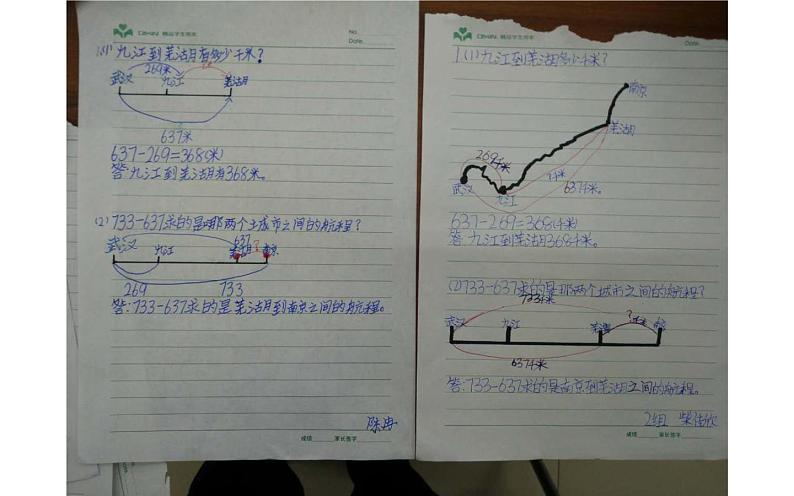 精品学生用本
No.
Date.
(1)九江到芜湖有多少千米?
269米
武汉
九江
芜湖
637米
637-269=368(米)
答:九江到芜湖有368米。
(2)733-637求的是哪两个城市之间的航程?
武汉
九江
637
芜湖
?
南京
269
733
答:733-637求的是芜湖到南京之间的航程。
陈冉
成绩
家长签字
精品学生用本
No.
Date.
1.(1)九江到芜湖多少千米?
南京
芜湖
269千米
?千米
武汉
九江
637千米
637-269=368(千米)
答:九江到芜湖368千米。
(2)733-637求的是哪两个城市之间的航程?
733千米
武汉
九江
芜湖
?千米
南京
637千米
答:733-637求的是南京到芜湖之间的航程。
2组
成绩
家长签字